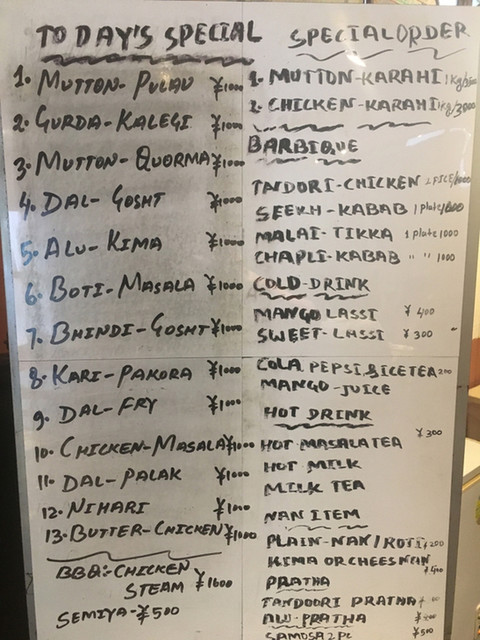 TODAY'S SPECIAL
1. MUTTON-PULAU ¥1000
2. GURDA-KALEGI ¥1000
3. MUTTON-QUORMA ¥1000
4. DAL-GOSHT ¥1000
5. ALU-KIMA ¥1000
6. BOTI-MASALA ¥1000
7. BHINDI-GOSHT ¥1000
8. KARI-PAKORA ¥1000
9. DAL-FRY ¥1000
10. CHICKEN-MASALA ¥1000
11. DAL-PALAK ¥1000
12. NIHARI ¥1000
13. BUTTER-CHICKEN ¥1000
BBQ:-CHICKEN
STEAM ¥1600
SEMIYA-¥500
SPECIAL ORDER
1. MUTTON-KARAHI 1Kg/
2. CHICKEN-KARAHI 1Kg/3000
BARBIQUE
TANDORI-CHICKEN
SEEKH-KABAB 1 Plate/
MALAI-TIKKA 1 plate 1000
CHAPLI-KABAB " " 1000
COLD-DRINK
MANGO LASSI ¥ 400
SWEET-LASSI ¥ 300
COLA, PEPSI, & ICE TEA 200
MANGO-JUICE
HOT DRINK
HOT MASALA TEA ¥300
HOT MILK
MILK TEA
NAN ITEM
PLAIN-NAN/ROTI ¥200
KIMA OR CHEES NAN ¥400
PRATHA
TANDOORI PRATHA ¥
ALU-PRATHA ¥
SAMOSA 2 Pc ¥500